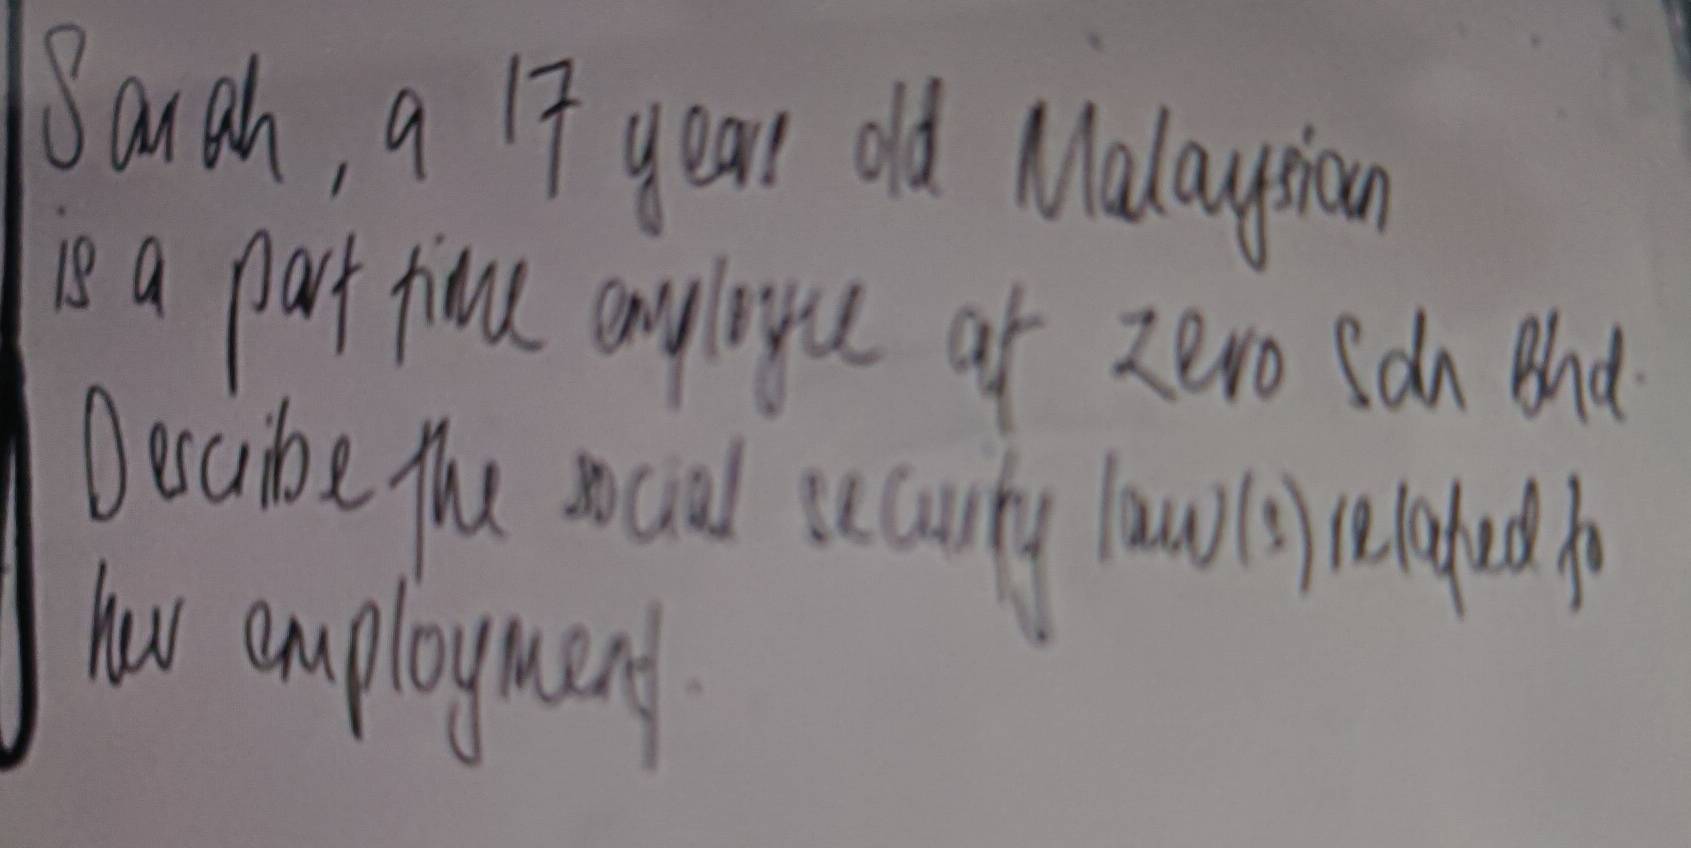 Sarah, a 17 years old Malaysian
is a part time employee at zero Sdn Bhd.
Describe the social security law(s) related to
her employment.